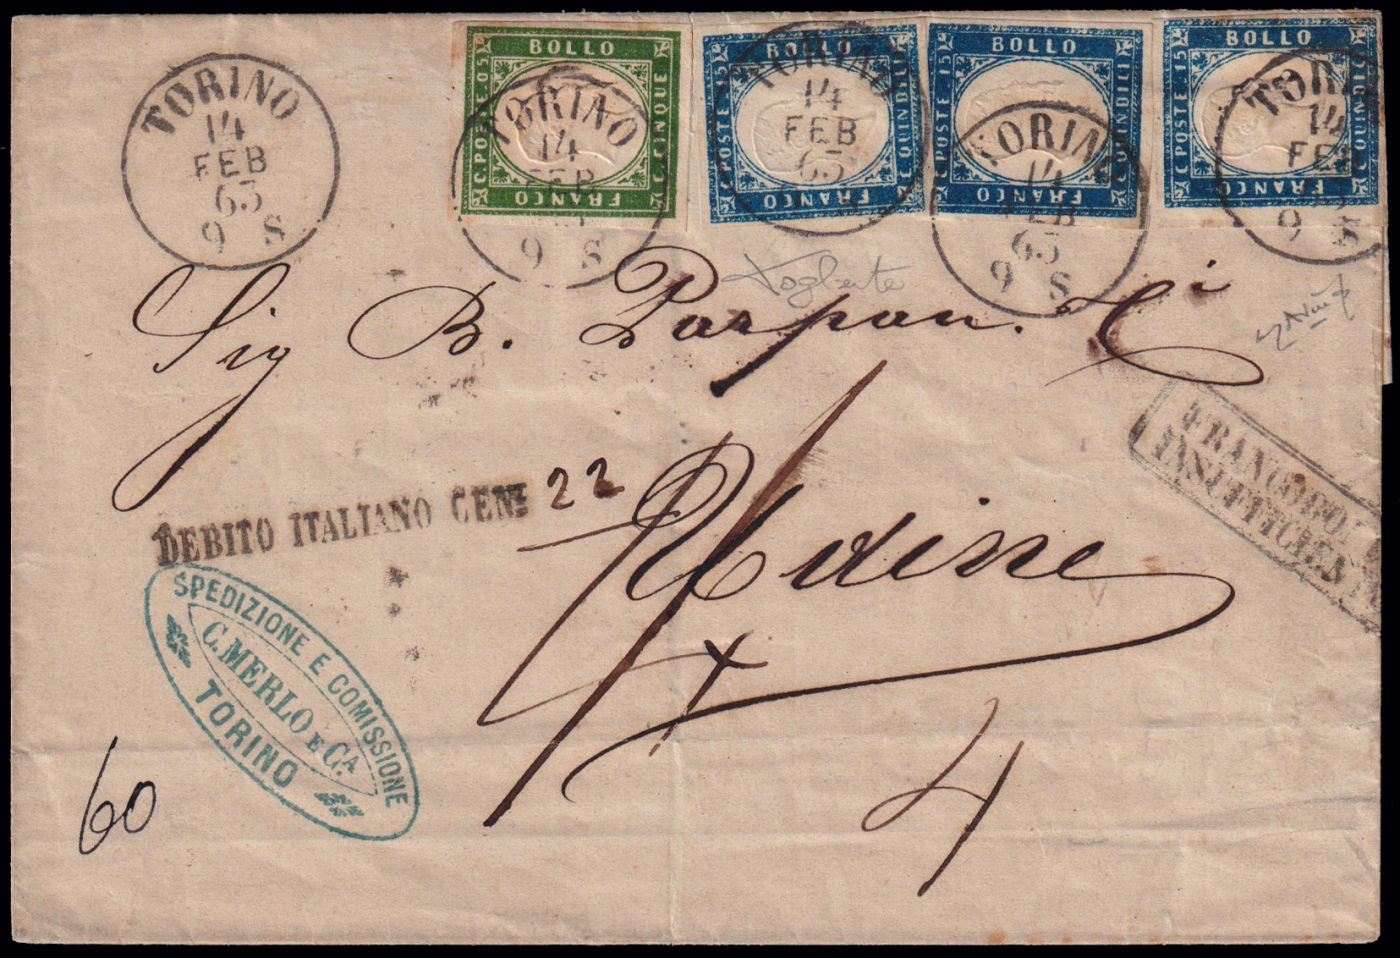 TORINO
14
FEB
63
9 S
BOLLO
C. POSTE. 05
C. CINQUE
FRANCO
TORINO
14
FEB
9 S
BOLLO
C. POSTE 15
C. QUINDICI
FRANCO
TORINO
14
FEB
63
BOLLO
C. POSTE 15
C. QUINDICI
FRANCO
TORINO
14
FEB
63
9 S
BOLLO
C. POSTE 15
FRANCO
TORI
14
FEB
9 S
Sig B. Parpan. Ci
Udine
DEBITO ITALIANO CENt 22
FRANCOBO
INSUFFICIEN
SPEDIZIONE E COMISSIONE
C. MERLO E CA.
TORINO
4
60